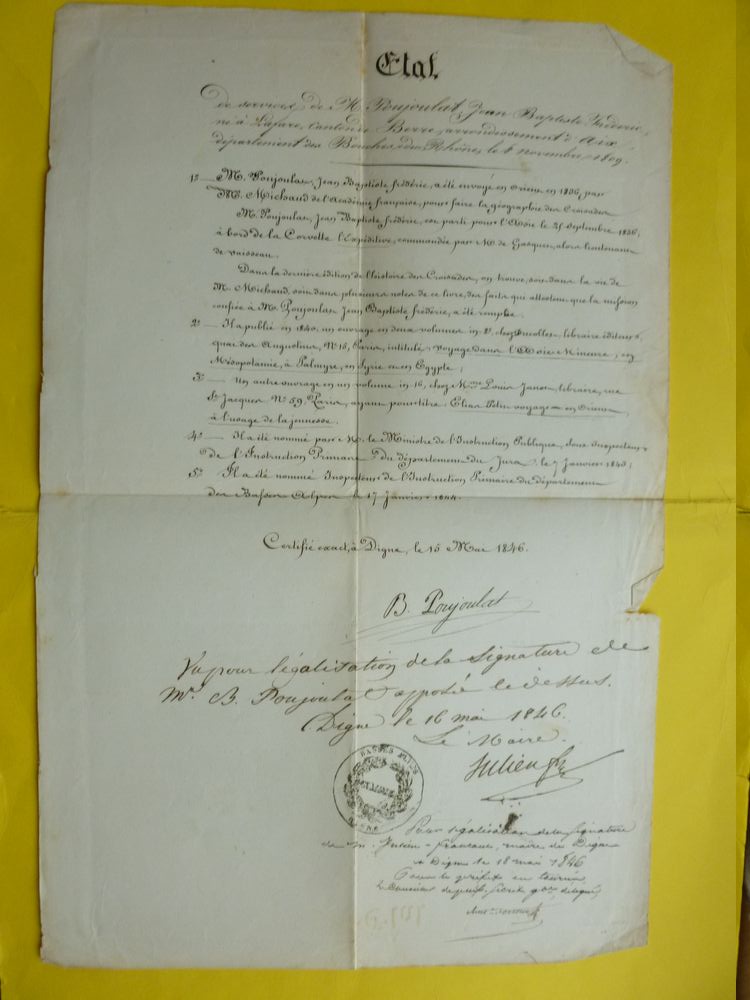 Etat
de services de M. Poujoulat, Jean Baptiste Frédéric,
né à Lafare, canton de Berre, arrondissement d'Aix,
département des Bouches du Rhône, le 8 novembre 1809.
1º — M. Poujoulat, Jean Baptiste frédéric, a été envoyé en Orient en 1836, par
M. Michaud de l'Académie française, pour faire la géographie des Croisades.
M. Poujoulat, Jean Baptiste frédéric, est parti pour l'Asie le 25 septembre 1836,
à bord de la Corvette l'Expéditive, commandée par M. de Gasquet, alors lieutenant
de vaisseau.
Dans la dernière édition de l'histoire des Croisades, on trouve, soit dans la vie de
M. Michaud, soit dans plusieurs notes de ce livre, des faits qui attestent que la mission
confiée à M. Poujoulat Jean Baptiste frédéric, a été remplie.
2º — Il a publié en 1840, un ouvrage en deux volumes in 8º, chez Ducollet, libraire éditeur,
quai des Augustins, Nº 15, Paris, intitulé: voyage dans l'Asie Mineure, en
Mésopotamie, à Palmyre, en Syrie et en Egypte;
3º — Un autre ouvrage en un volume in 16, chez Mme Louis Janet, libraire, rue
St Jacques Nº 59, Paris, ayant pour titre: Elian Petit voyage en Orient,
à l'usage de la jeunesse.
4º — Il a été nommé par M. le Ministre de l'Instruction Publique, sous Inspecteur
de l'Instruction Primaire du département du Jura, le 7 Janvier 1843;
5º Il a été nommé Inspecteur de l'Instruction Primaire du département
des Basses Alpes le 17 Janvier 1844.
Certifié exact, à Digne, le 15 Mai 1846.
B. Poujoulat
Vu pour légalisation de la signature de
Mr. B. Poujoulat apposée ci dessus.
Digne le 16 mai 1846.
Le Maire.
Julien
BASSES ALPES
Pour légalisation de la signature
de M. Julien-francoul, maire de Digne
à Digne le 18 mai 1846
Pour le préfet en tournée